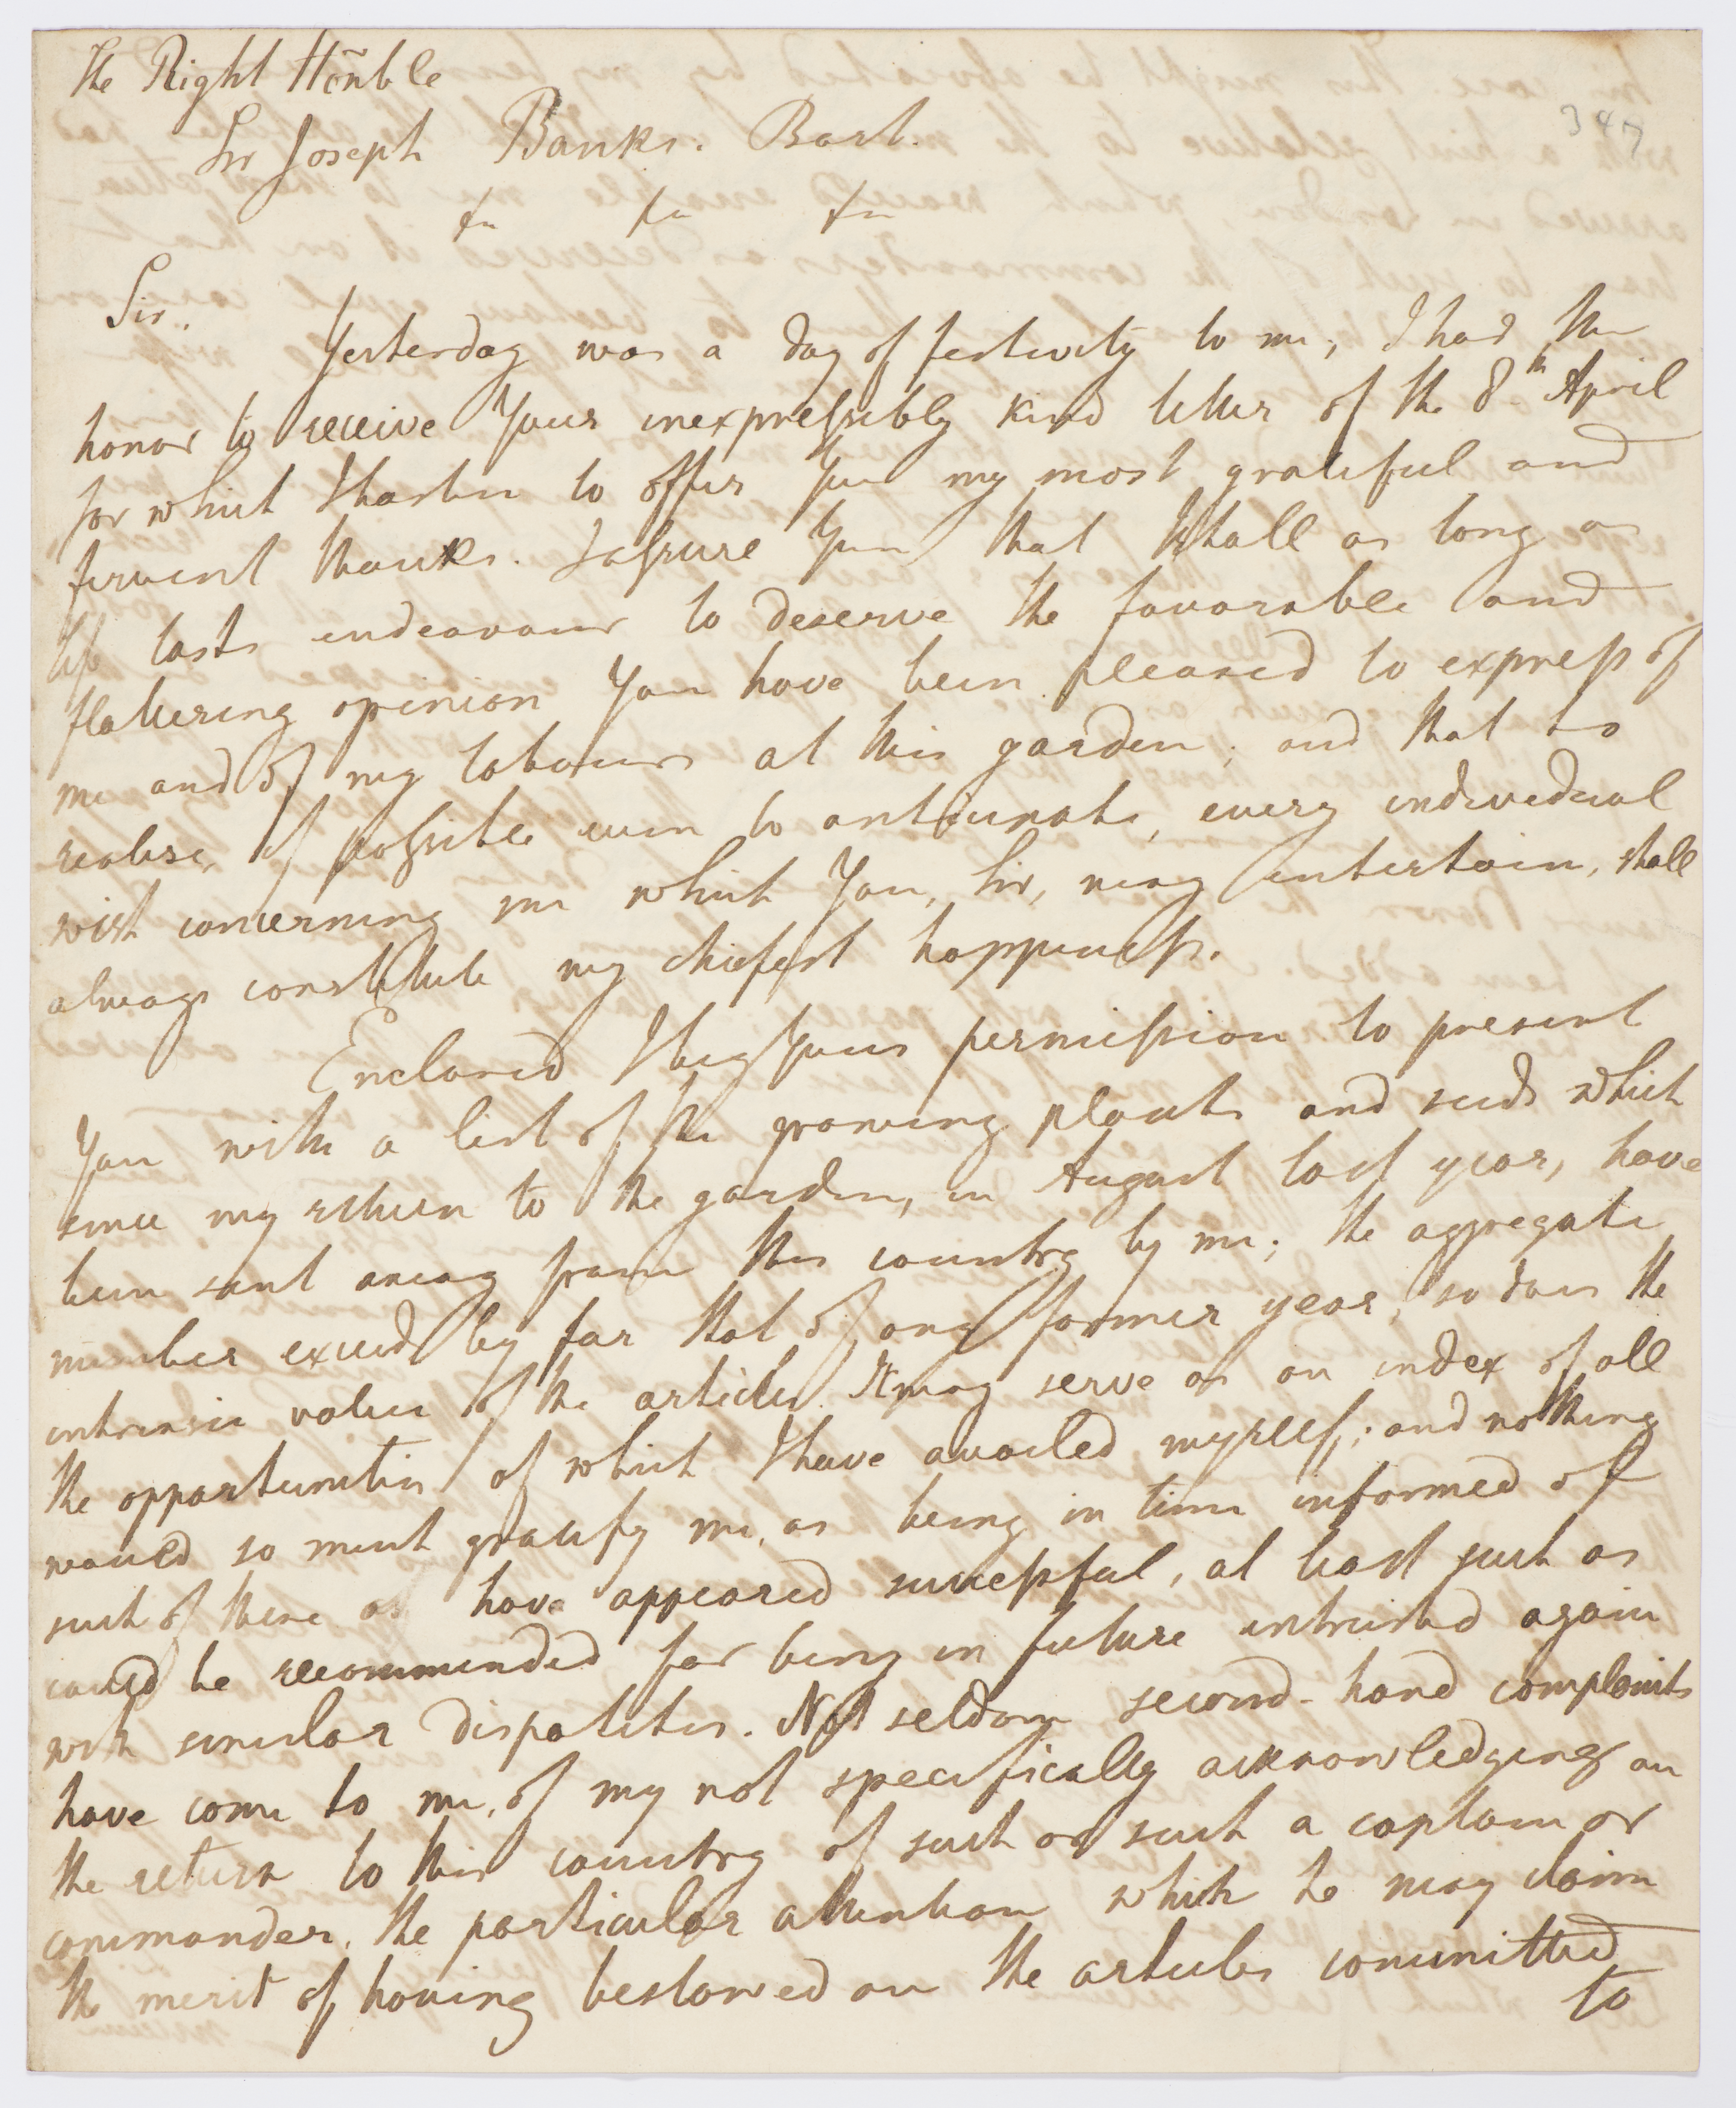 The Right Hoñble
347
Sir Joseph Banks. Bart.
&c &c &c
Sir.
Yesterday was a day of festivity to me; I had the
honor to receive Your inexpressibly kind letter of the 8th April
for which I hasten to offer You my most grateful and
fervent thanks. I assure You that I shall as long as
life lasts endeavour to deserve the favorable and
flattering opinion You have been pleased to express of
me and of my labours at this garden; and that to
realise, if possible even to anticipate, every individual
wish concerning me which You, Sir, may entertain, shall
always constitute my chiefest happiness.
Enclosed I beg Your permission to present
You with a list of the growing plants and seeds which
since my return to the garden, in August last year, have
been sent away from this country by me; the aggregate
number exceeds by far that of any former year, so does the
intrinsic value of the articles. It may serve as an index of all
the opportunities of which I have availed myself; and nothing
would so much gratify me, as being in time informed of
such of these as have appeared successful, at least such as
could be recommended for being in future intrusted again
with similar dispatches. Not seldom second-hand complaints
have come to me, of my not specifically acknowledging on
the return to this country of such or such a captain or
commander, the particular attention which he may claim
the merit of having bestowed on the articles committed
to